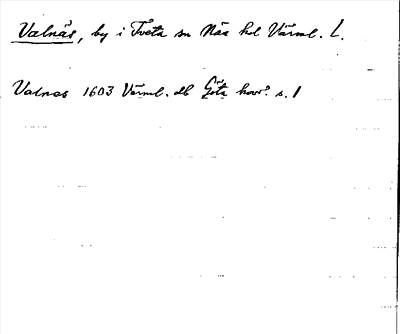 Valnäs, by i Tveta sn Näs hd Värml. L.
Valnas 1603 Värml. db Göta hovr. s. 1